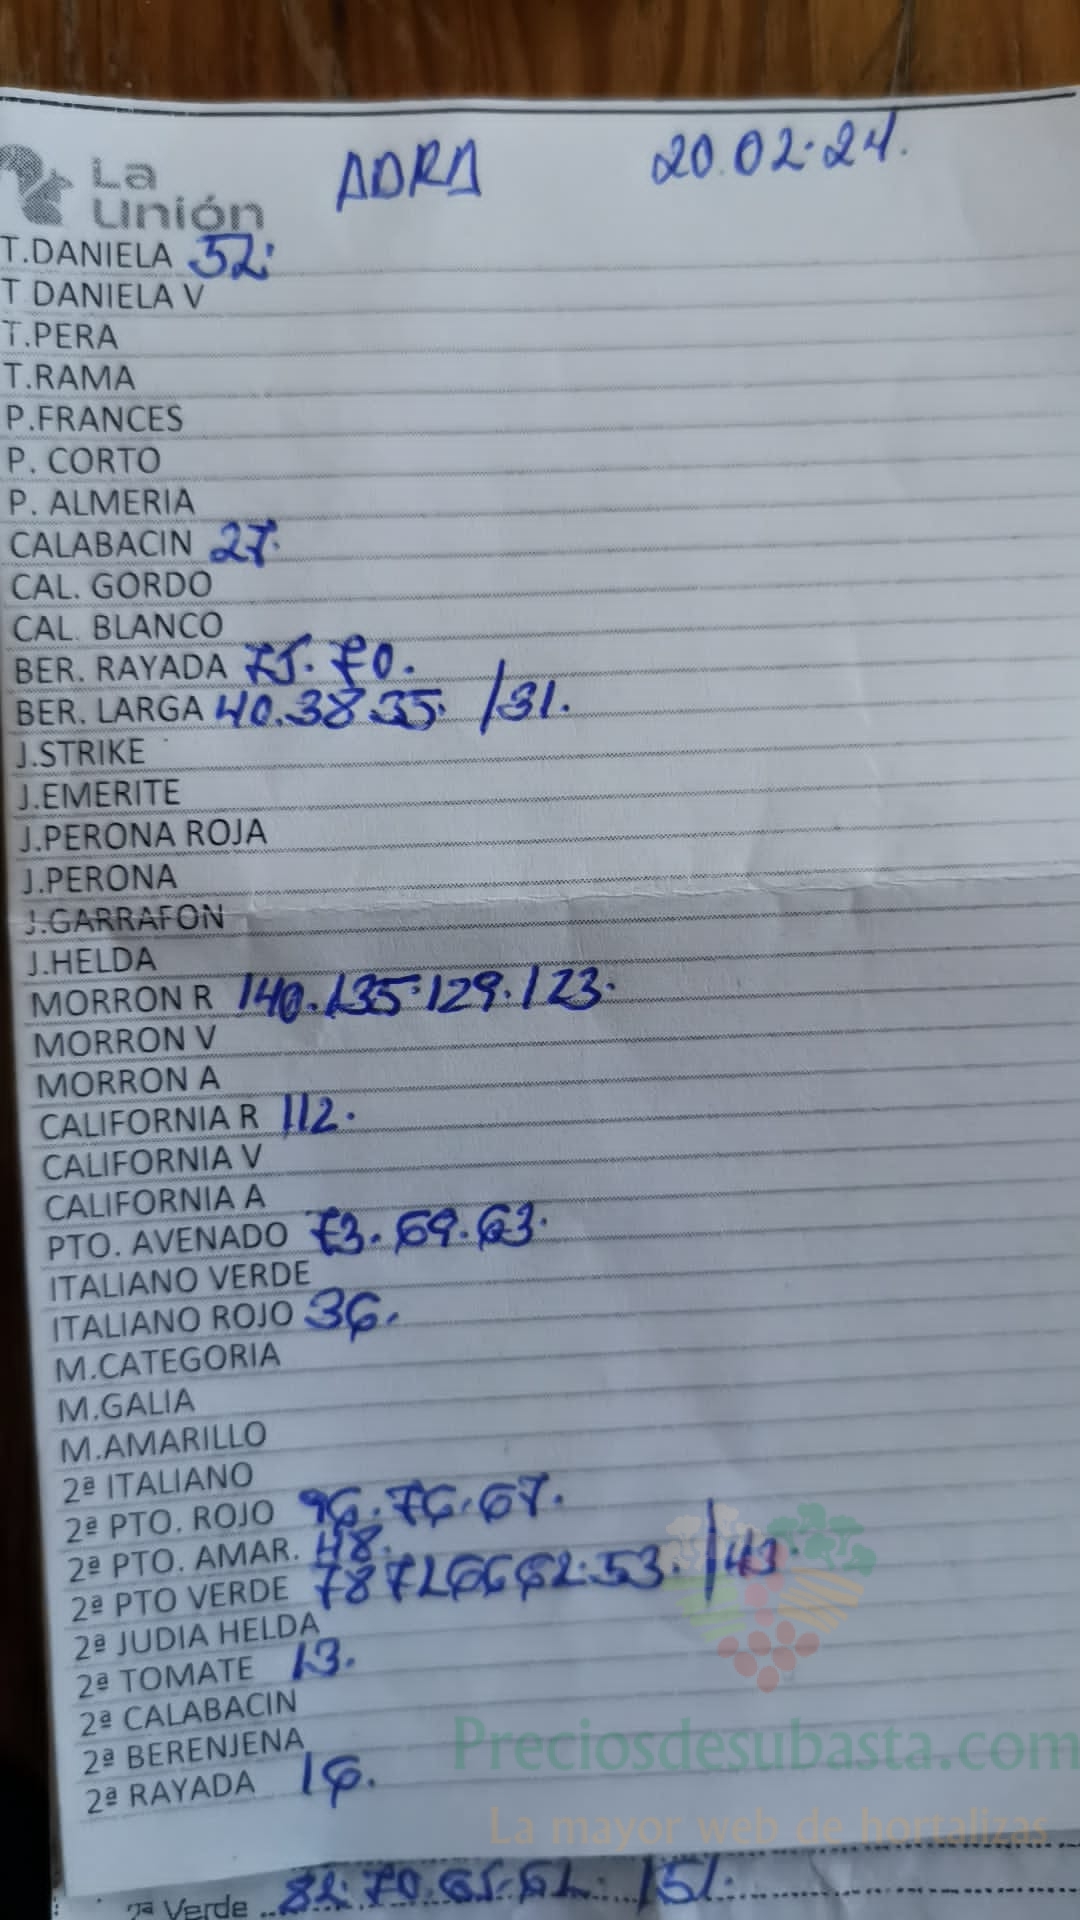 La
Unión
ADRA 20.02.24.
T.DANIELA 52.
T DANIELA V
T.PERA
T.RAMA
P.FRANCES
P. CORTO
P. ALMERIA
CALABACIN 27.
CAL. GORDO
CAL. BLANCO
BER. RAYADA 75. 70.
BER. LARGA 40.38 35. /31.
J.STRIKE
J.EMERITE
J.PERONA ROJA
J.PERONA
J.GARRAFON
J.HELDA
MORRON R 140.135.129.123.
MORRON V
MORRON A
CALIFORNIA R 112.
CALIFORNIA V
CALIFORNIA A
PTO. AVENADO 73. 69. 63.
ITALIANO VERDE
ITALIANO ROJO 36.
M.CATEGORIA
M.GALIA
M.AMARILLO
2ª ITALIANO
2ª PTO. ROJO 96. 76. 67.
2ª PTO. AMAR. 48.
2ª PTO VERDE 78 72 66 62. 53. /43.
2ª JUDIA HELDA
2ª TOMATE 13.
2ª CALABACIN
2ª BERENJENA
2ª RAYADA 16.
Preciosdesubasta.com
La mayor web de hortalizas
2ª Verde 82. 70. 65. 62. /51.